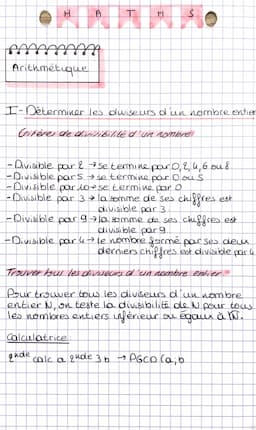 MATHS
Arithmétique
I - Déterminer les diviseurs d'un nombre entier
Critères de divisibilité d'un nombre
- Divisible par 2 → se termine par 0, 2, 4, 6 ou 8
- Divisible par 5 → se termine par 0 ou 5
- Divisible par 10 → se termine par 0
- Divisible par 3 → la somme de ses chiffres est
divisible par 3
- Divisible par 9 → la somme de ses chiffres est
divisible par 9
- Divisible par 4 → le nombre formé par ses deux
derniers chiffres est divisible par 4
Trouver tous les diviseurs d'un nombre entier
Pour trouver tous les diviseurs d'un nombre
entier N, on teste la divisibilité de N pour tous
les nombres entiers inférieur ou égaux à √N.
Calculatrice
2nde calc a 2nde 3 b → PGCD (a, b